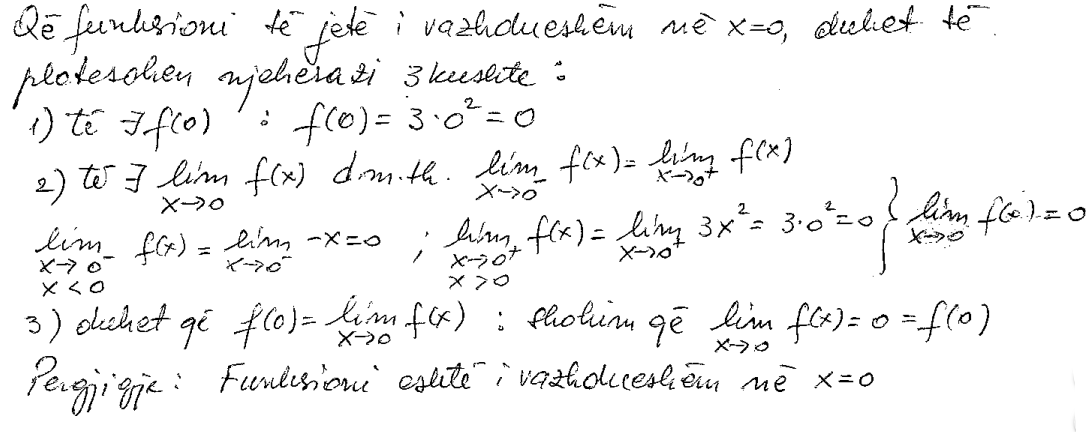 Që funksioni të jetë i vazhdueshëm në x=0, duhet të
plotesohen njeherazi 3 kushte :
1) të ∃ f(0) : f(0) = 3·0² = 0
2) të ∃ lim x→0 f(x) d.m.th. lim x→0⁻ f(x) = lim x→0⁺ f(x)
lim x→0⁻ x<0 f(x) = lim x→0⁻ -x = 0 ; lim x→0⁺ x>0 f(x) = lim x→0⁺ 3x² = 3·0² = 0 } lim x→0 f(x) = 0
3) duhet që f(0) = lim x→0 f(x) : shohim që lim x→0 f(x) = 0 = f(0)
Pergjigje : Funksioni eshtë i vazhdueshëm në x=0